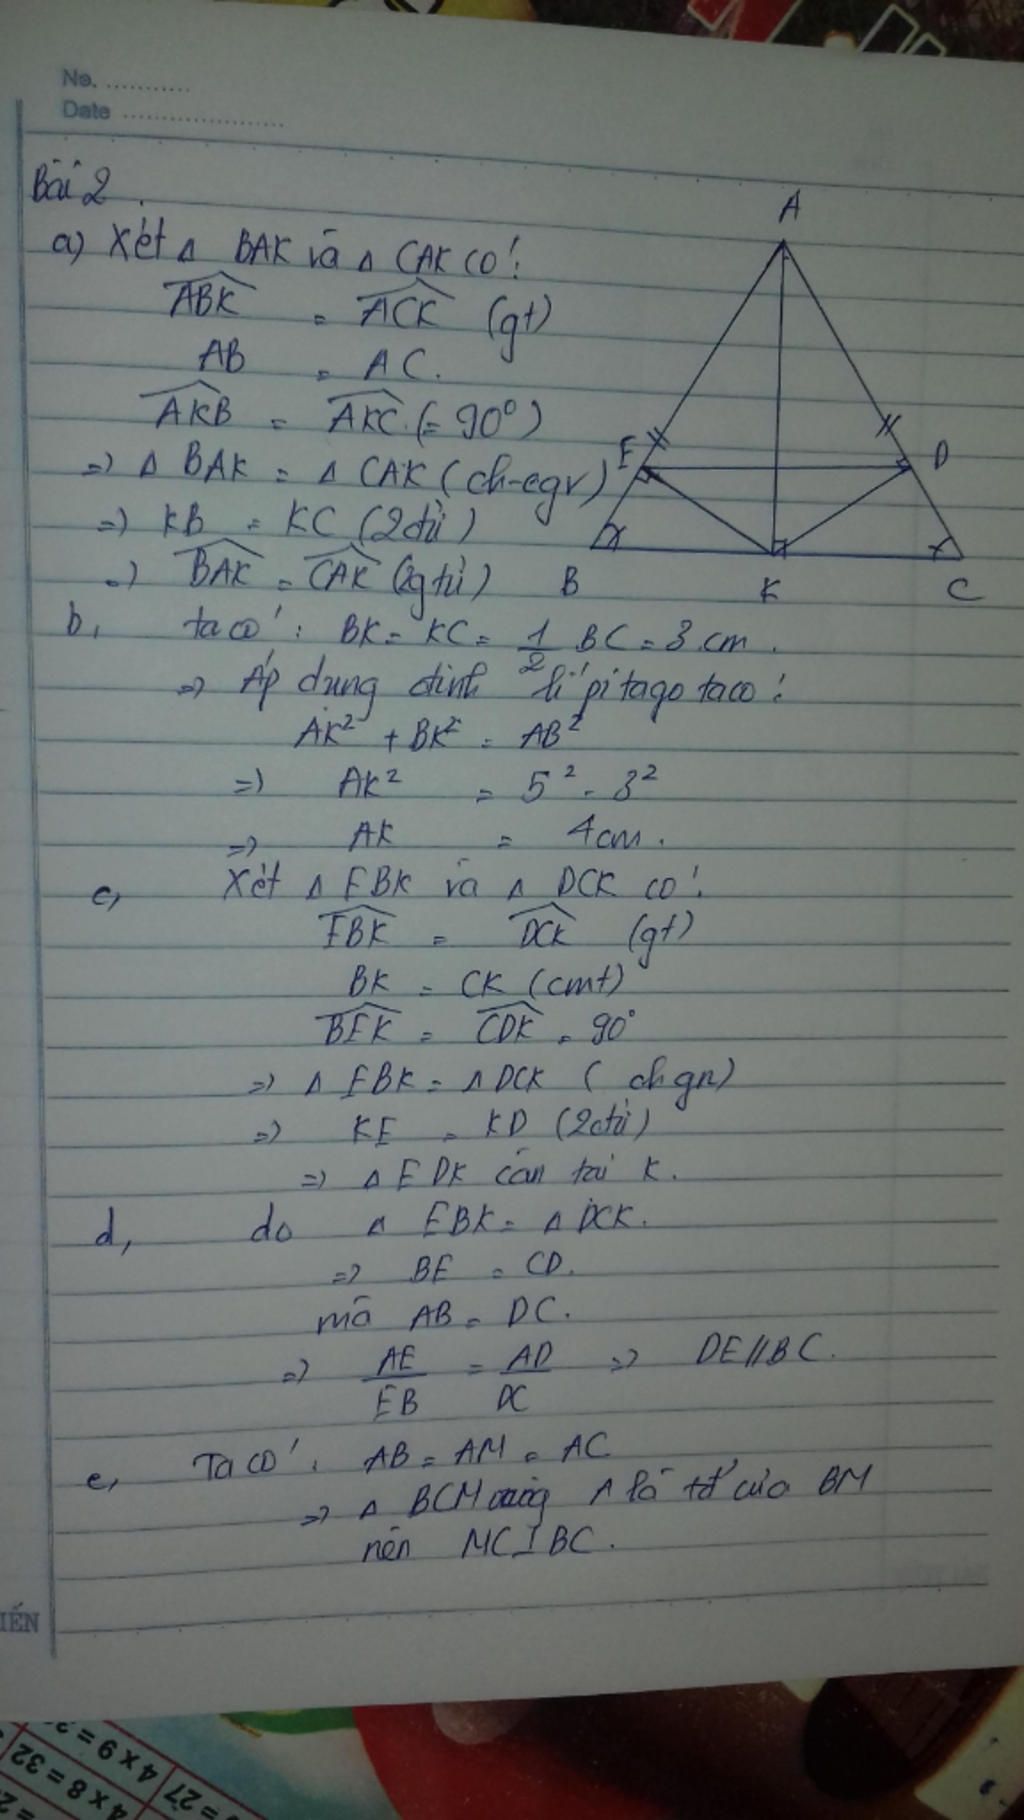 No. ...........
Date ......................
Bài 2.
a) Xét Δ BAK và Δ CAK có:
ABK = ACK (gt)
AB = AC.
AKB = AKC (= 90°)
=> Δ BAK = Δ CAK (ch-cgv)
=> KB = KC (2ctứ)
=> BAK = CAK (2gtứ)
A
E
D
B
K
C
b, ta có: BK = KC = 1/2 BC = 3 cm.
=> Áp dụng định lí pitago ta có:
AK² + BK² = AB²
=> AK² = 5² - 3²
=> AK = 4cm.
c, Xét Δ EBK và Δ DCK có:
EBK = DCK (gt)
BK = CK (cmt)
BEK = CDK = 90°
=> Δ EBK = Δ DCK (ch gn)
=> KE = KD (2ctứ)
=> Δ EDK cân tại K.
d, do Δ EBK = Δ DCK.
=> BE = CD.
mà AB = DC.
=> AE/EB = AD/DC => DE // BC.
e, Ta có: AB = AM = AC
=> Δ BCM vuông A là tđ của BM
nên MC⊥BC.
IẾN
4 x 9 = 3
4 x 8 = 32
= 27